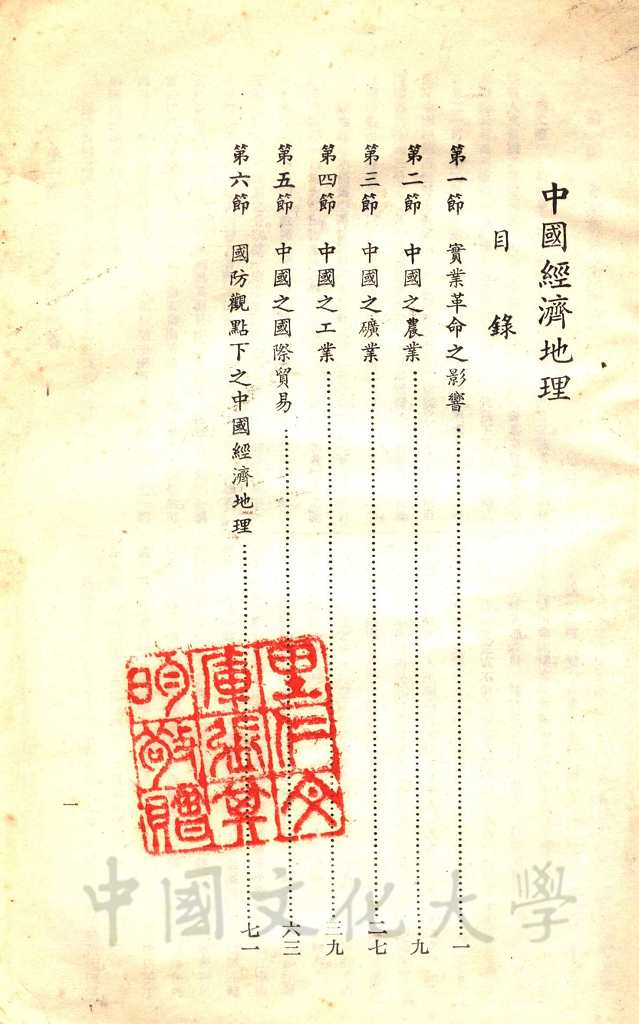 中國經濟地理
目錄
第一節 實業革命之影響…………一
第二節 中國之農業…………九
第三節 中國之礦業…………二七
第四節 中國之工業…………三九
第五節 中國之國際貿易…………六三
第六節 國防觀點下之中國經濟地理…………七一
里仁文
庫張其
昀敬贈
一
中國文化大學